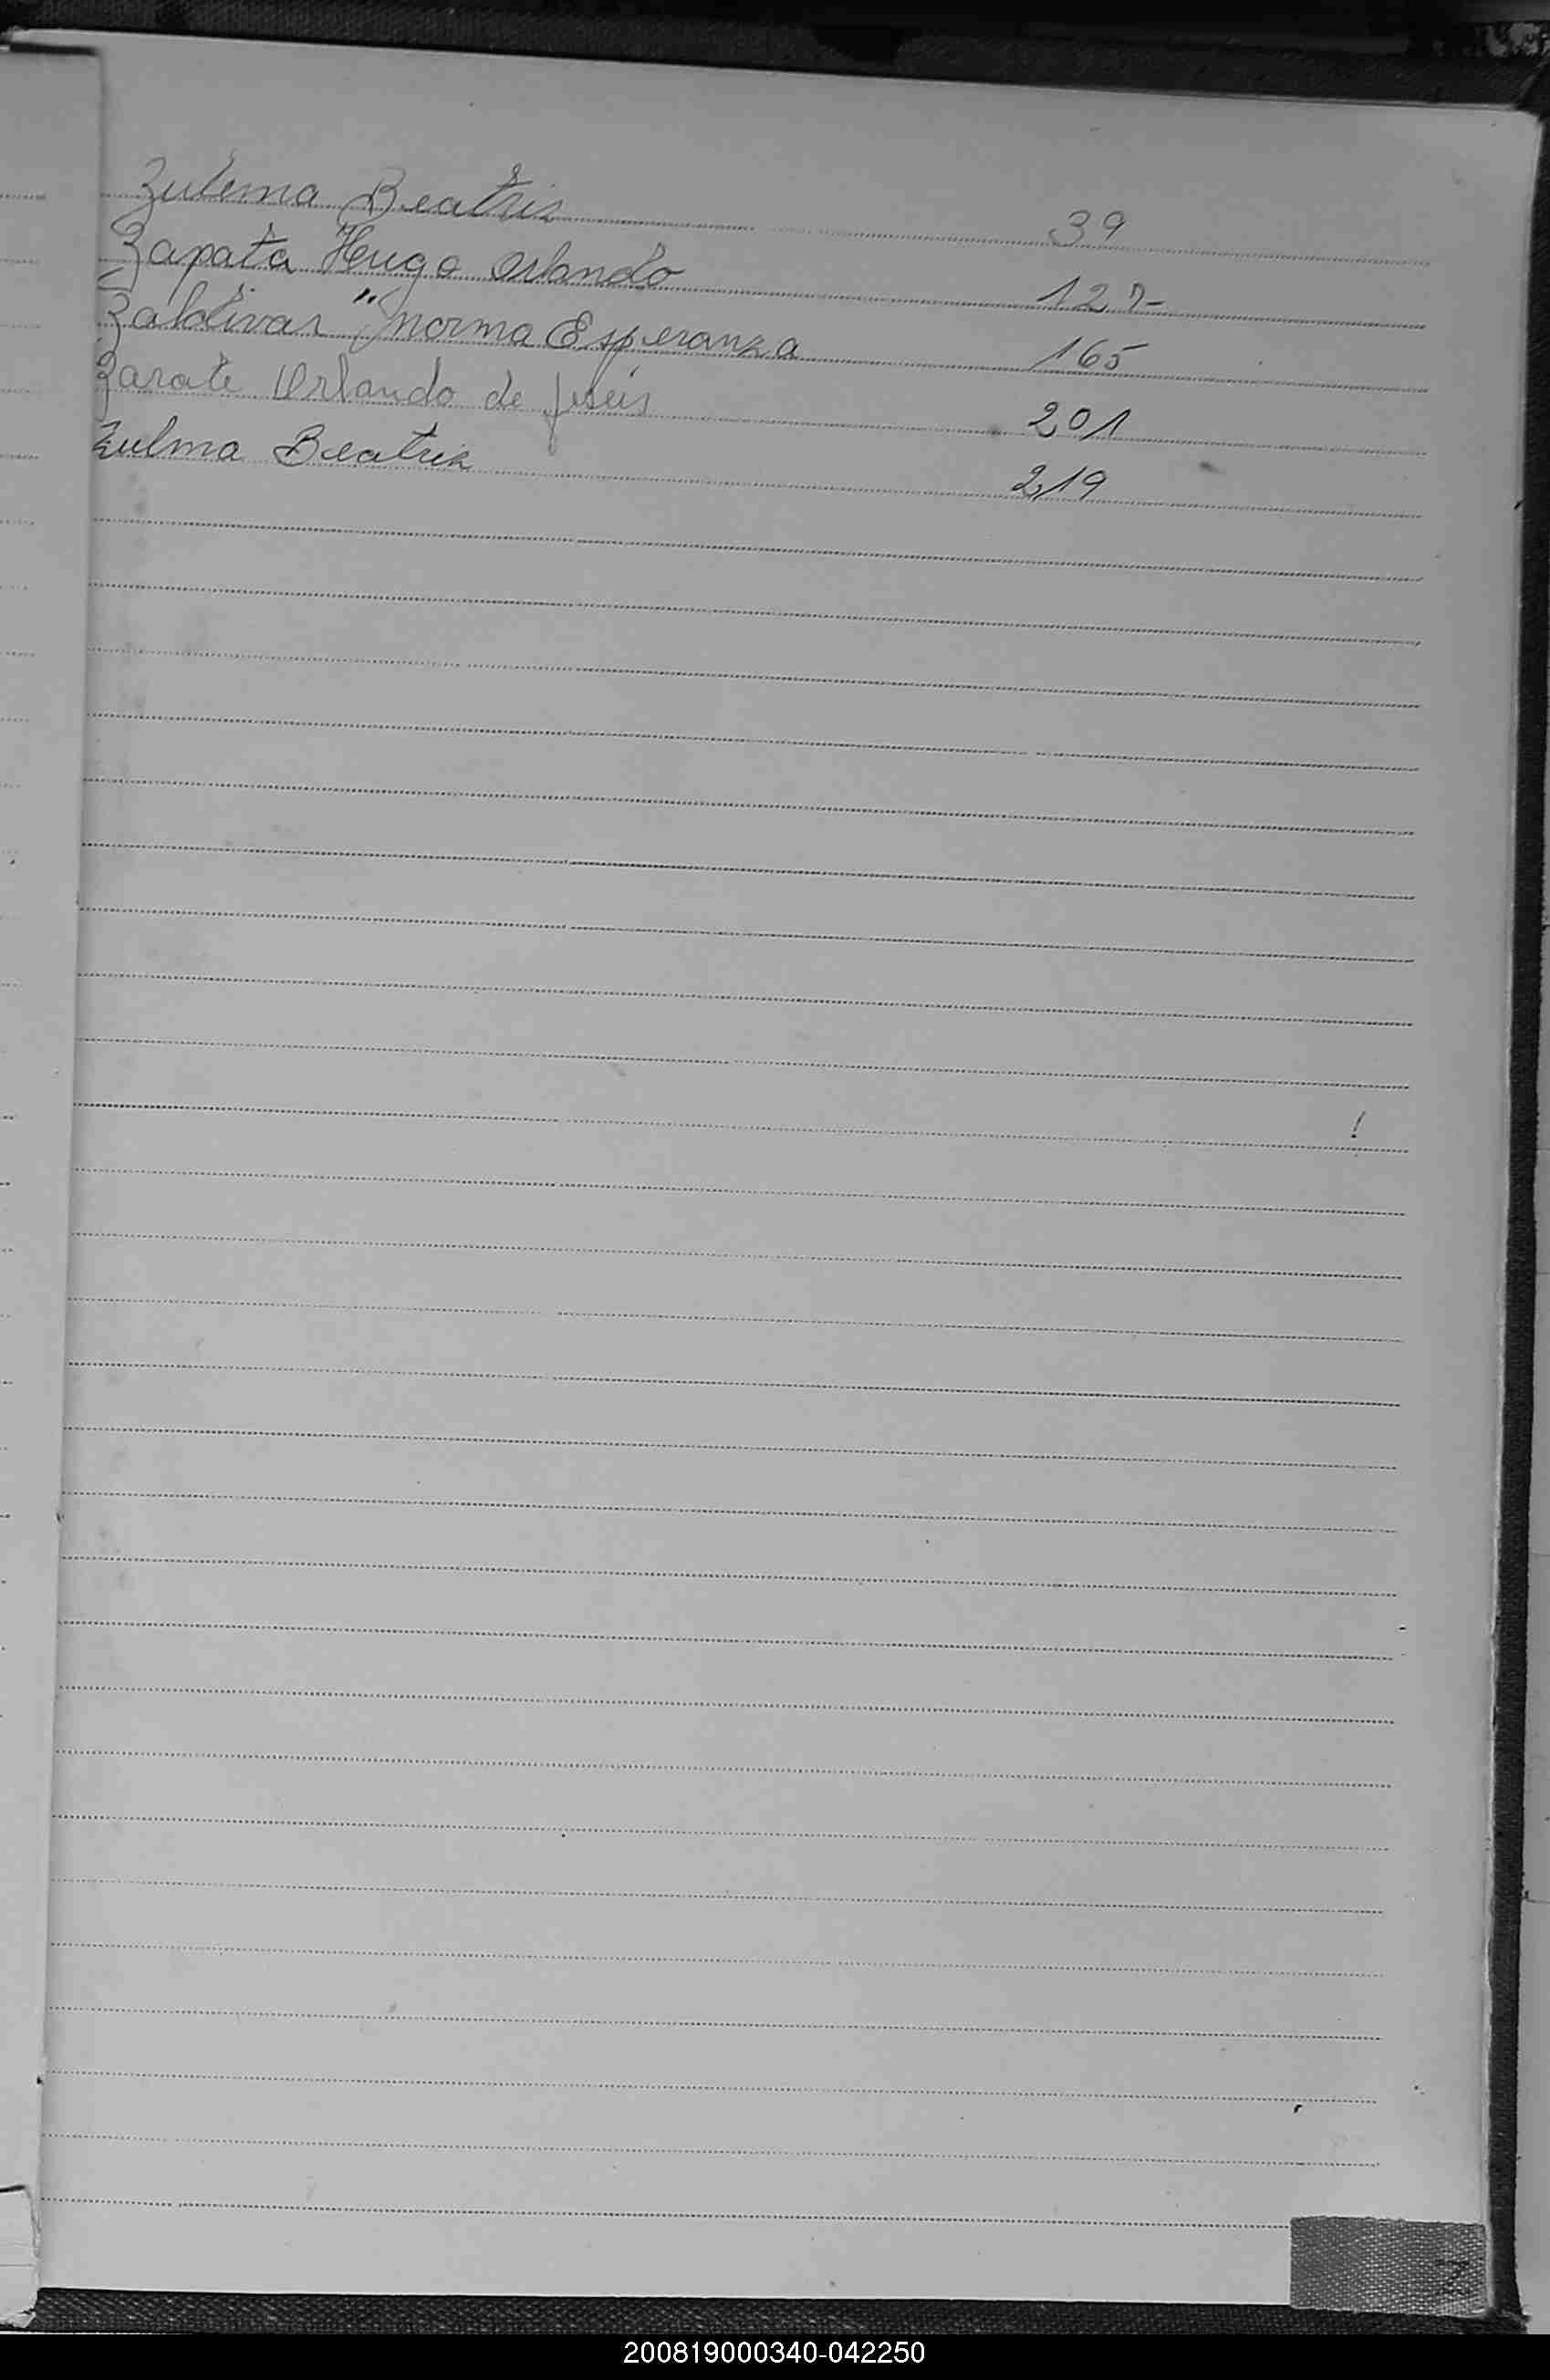 Zulema Beatris 39
Zapata Hugo Orlando 127
Zaldivar " Norma Esperanza 165
Zarate Orlando de Jesús 201
Zulma Beatriz 219
Z
200819000340-042250